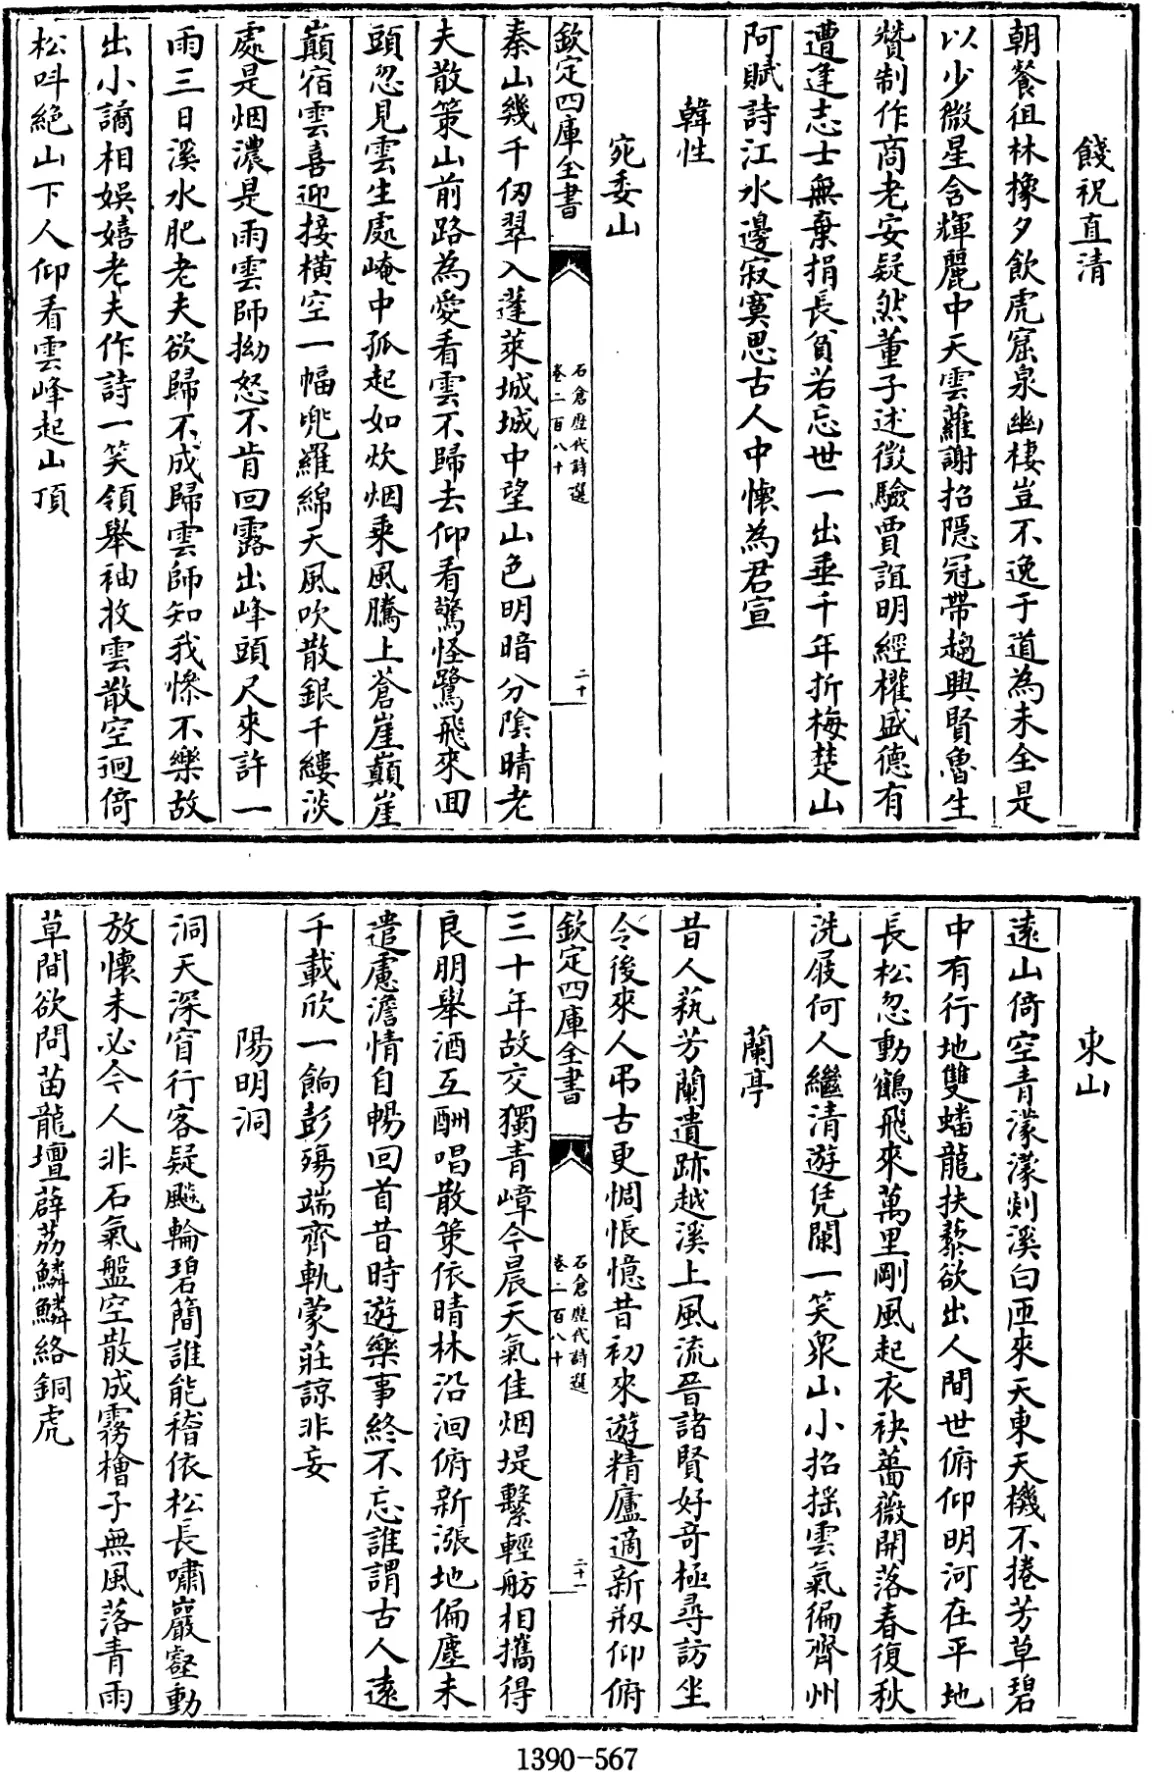 餞祝直清
朝餐徂林橡夕飲虎窟泉幽棲豈不逸于道為未全是
以少微星含輝麗中天雲蘿謝招隱冠帶趨興賢魯生
贊制作商老安疑然董子述徵驗賈誼明經權盛德有
遭逢志士無棄捐長貧若忘世一出垂千年折梅楚山
阿賦詩江水邊寂寞思古人中懷為君宣
韓性
宛委山
秦山幾千仞翠入蓬萊城城中望山色明暗分陰晴老
夫散策山前路為愛看雲不歸去仰看驚怪鷺飛來回
頭忽見雲生處崦中孤起如炊烟乘風騰上蒼崖巔崖
巔宿雲喜迎接橫空一幅兜羅綿天風吹散銀千縷淡
處是烟濃是雨雲師拗怒不肯回露出峰頭尺來許一
雨三日溪水肥老夫欲歸不成歸雲師知我慘不樂故
出小譎相娛嬉老夫作詩一笑領舉袖收雲散空迥倚
松呌絕山下人仰看雲峰起山頂
欽定四庫全書
石倉歷代詩選
卷二百八十
二十
東山
遠山倚空青濛濛剡溪白匝來天東天機不捲芳草碧
中有行地雙蟠龍扶藜欲出人間世俯仰明河在平地
長松忽動鶴飛來萬里剛風起衣袂薔薇開落春復秋
洗屐何人繼清遊凭闌一笑衆山小招搖雲氣徧齊州
蘭亭
昔人蓺芳蘭遺跡越溪上風流晉諸賢好奇極尋訪坐
令後來人弔古更惆悵憶昔初來遊精廬適新刱仰俯
三十年故交獨青嶂今晨天氣佳烟堤繫輕舫相攜得
良朋舉酒互酬唱散策依晴林沿洄俯新漲地偏塵未
遣慮澹情自暢回首昔時遊樂事終不忘誰謂古人遠
千載欣一餉彭殤端齊軌蒙莊諒非妄
陽明洞
洞天深窅行客疑飈輪碧簡誰能稽依松長嘯巖壑動
放懷未必今人非石氣盤空散成霧檜子無風落青雨
草間欲問苗龍壇薜荔鱗鱗絡銅虎
欽定四庫全書
石倉歷代詩選
卷二百八十
二十一
1390-567